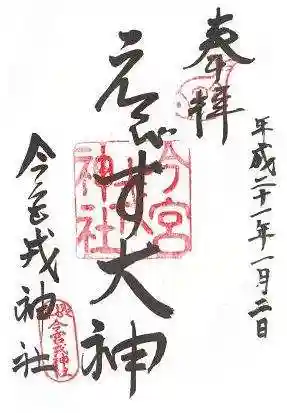 奉拝
平成二十一年一月二日
ゑびす大神
今宮戎神社
今宮
戎
神社
今宮戎神社